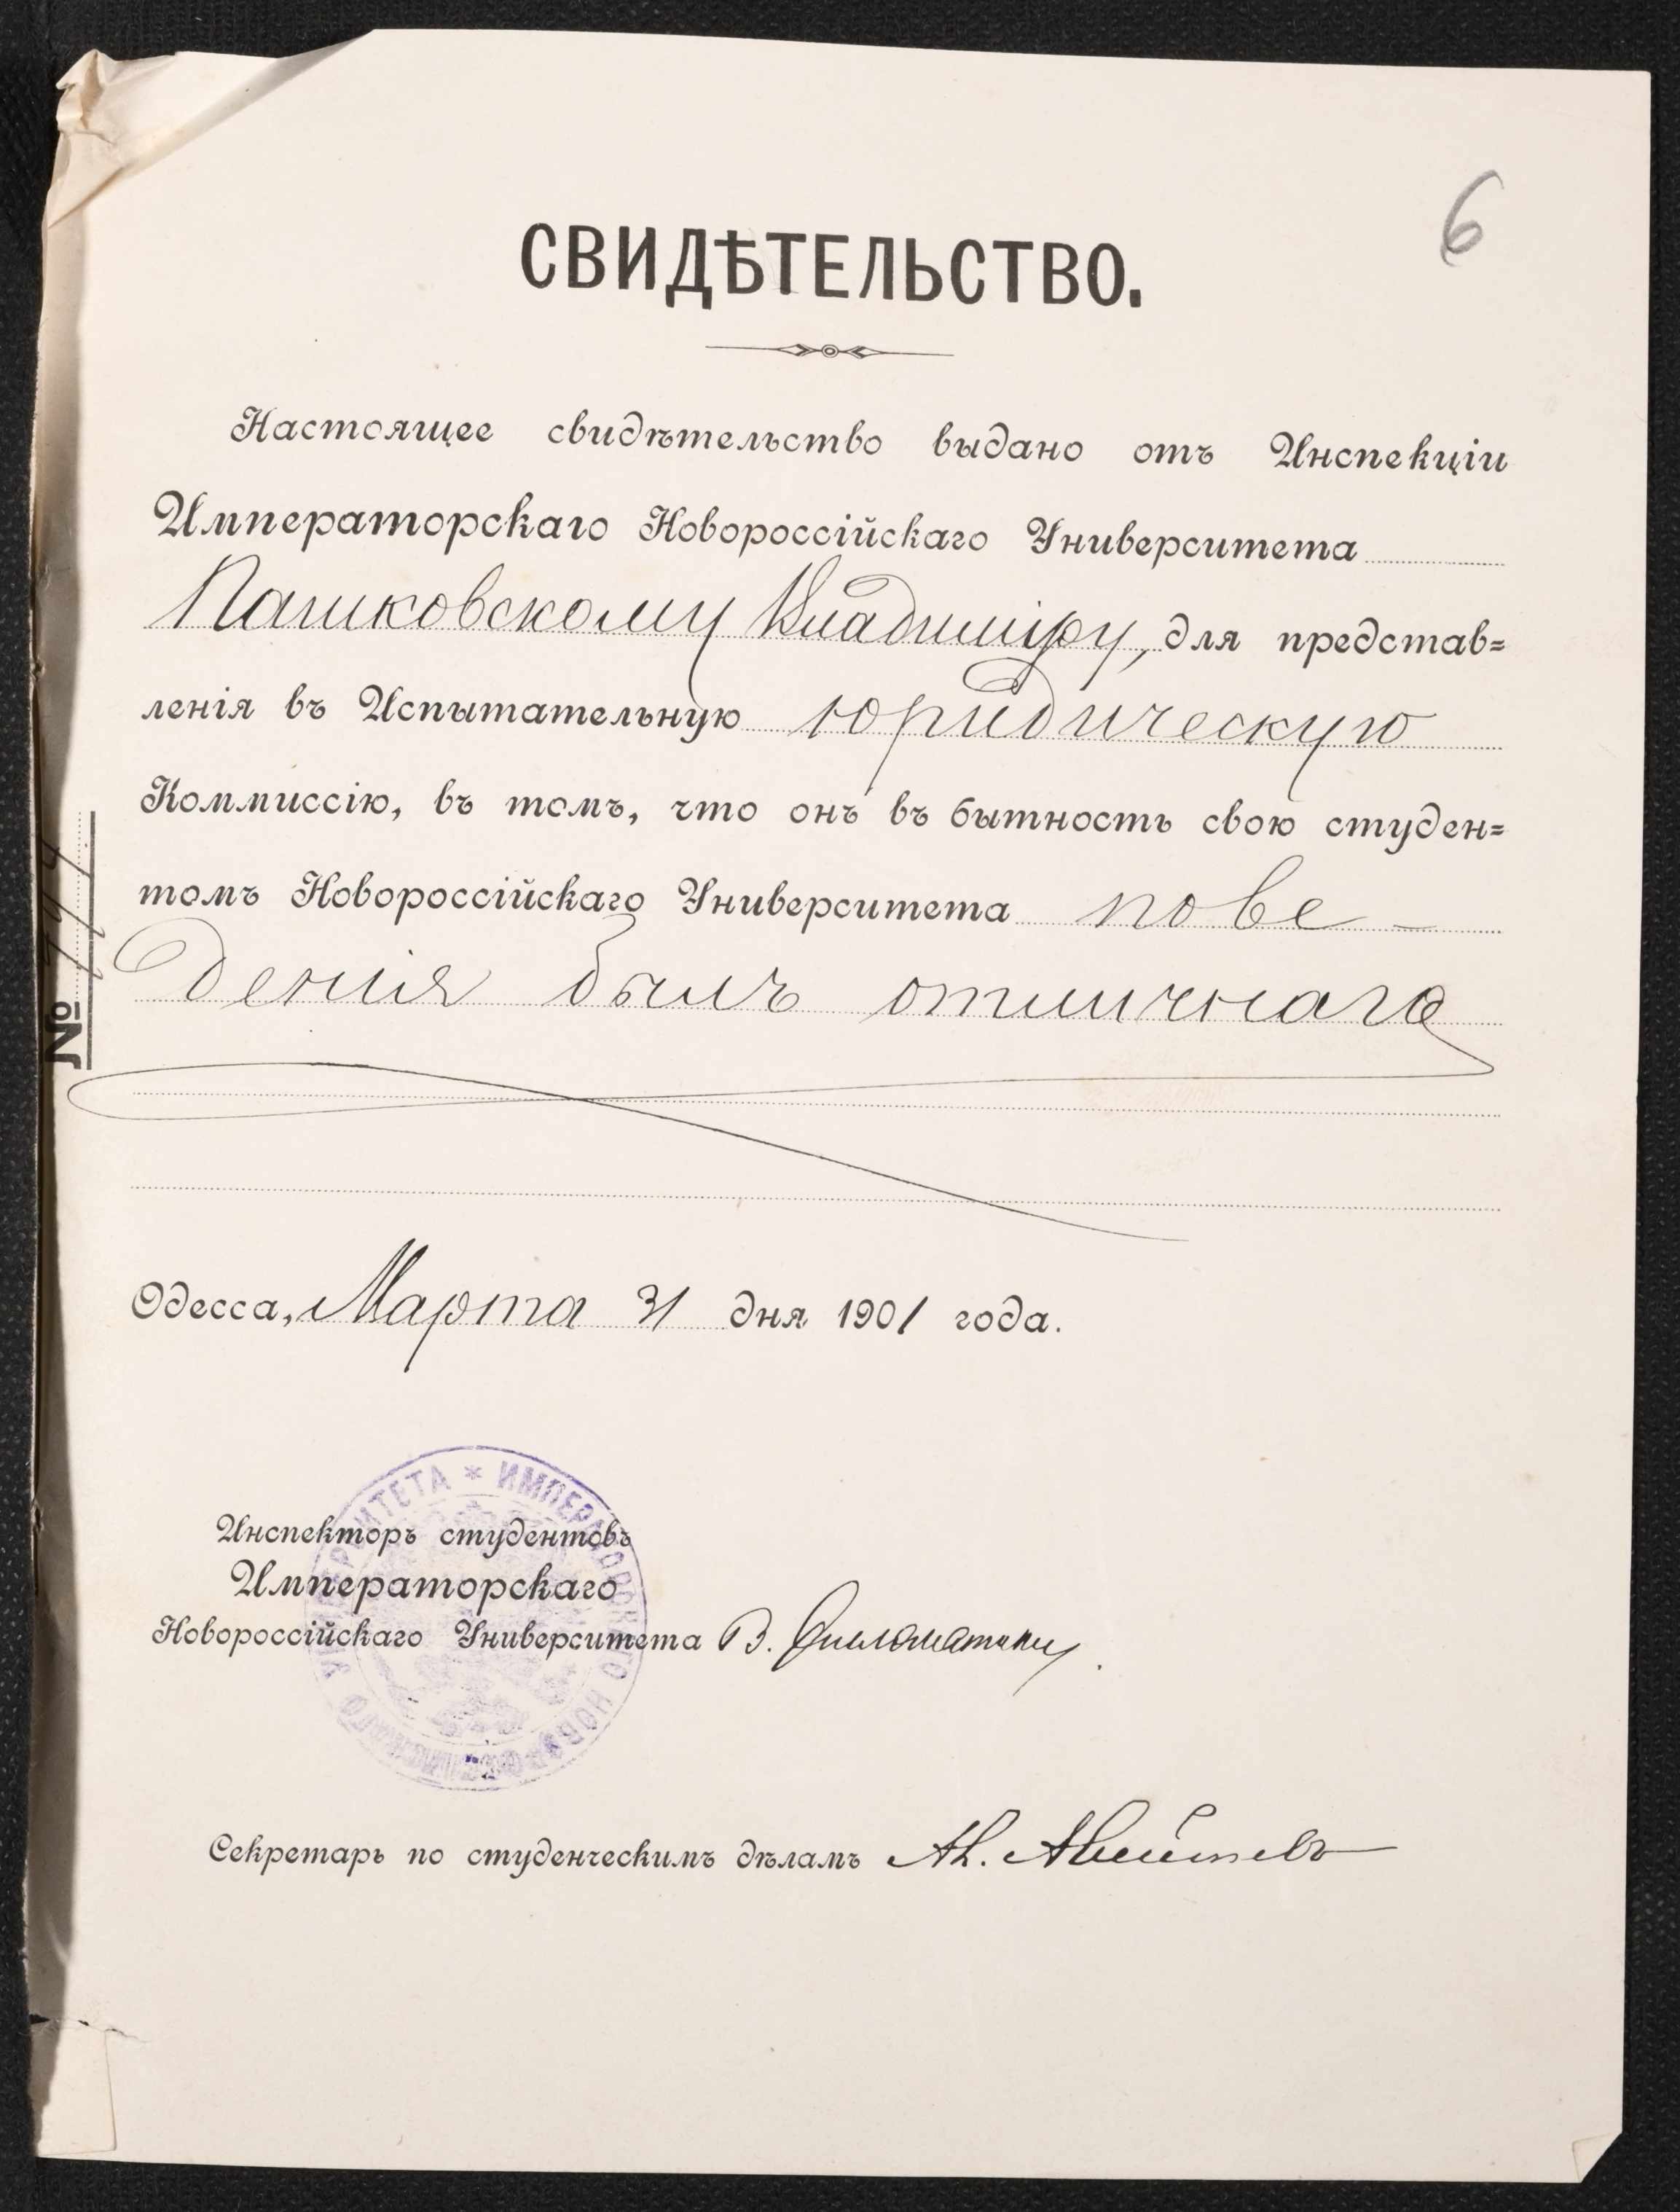 6
СВИДѢТЕЛЬСТВО.
Настоящее свидѣтельство выдано отъ Инспекціи
Императорскаго Новороссійскаго Университета
Пашковскому Владиміру, для представ=
ленія въ Испытательную юридическую
Коммиссію, въ томъ, что онъ въ бытность свою студен=
томъ Новороссійскаго Университета пове-
денія былъ отличнаго
№
Одесса, Марта 31 дня 1901 года.
Инспекторъ студентовъ
Императорскаго
Новороссійскаго Университета В.
Секретарь по студенческимъ дѣламъ
* ИМПЕРАТОРСКАГО НОВОРОССІЙСКАГО УНИВЕРСИТЕТА